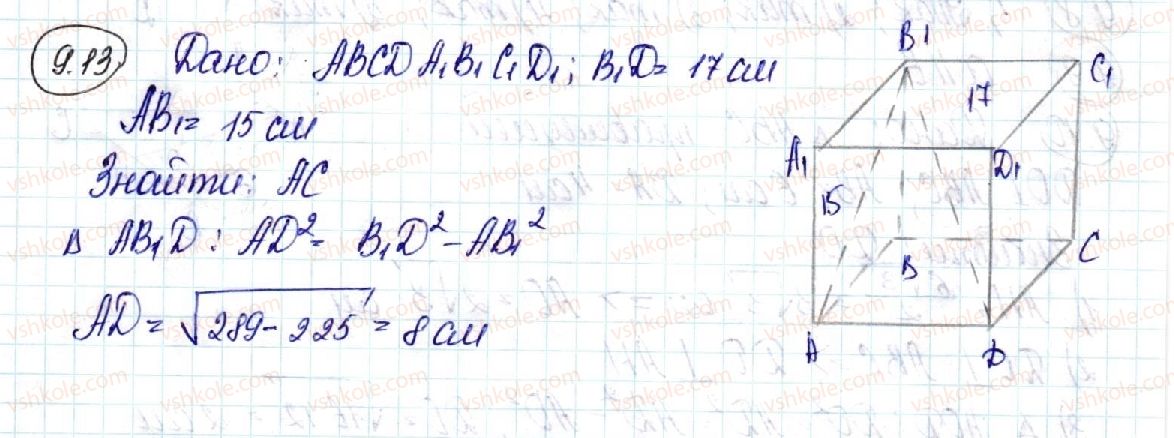 9.13 Дано: ABCDA₁B₁C₁D₁; B₁D = 17 см
AB₁ = 15 см
Знайти: AC
Δ AB₁D: AD² = B₁D² - AB₁²
AD = √289 - 225 = 8 см
B₁
C₁
17
A₁
D₁
15
B
C
A
D
vshkole.com